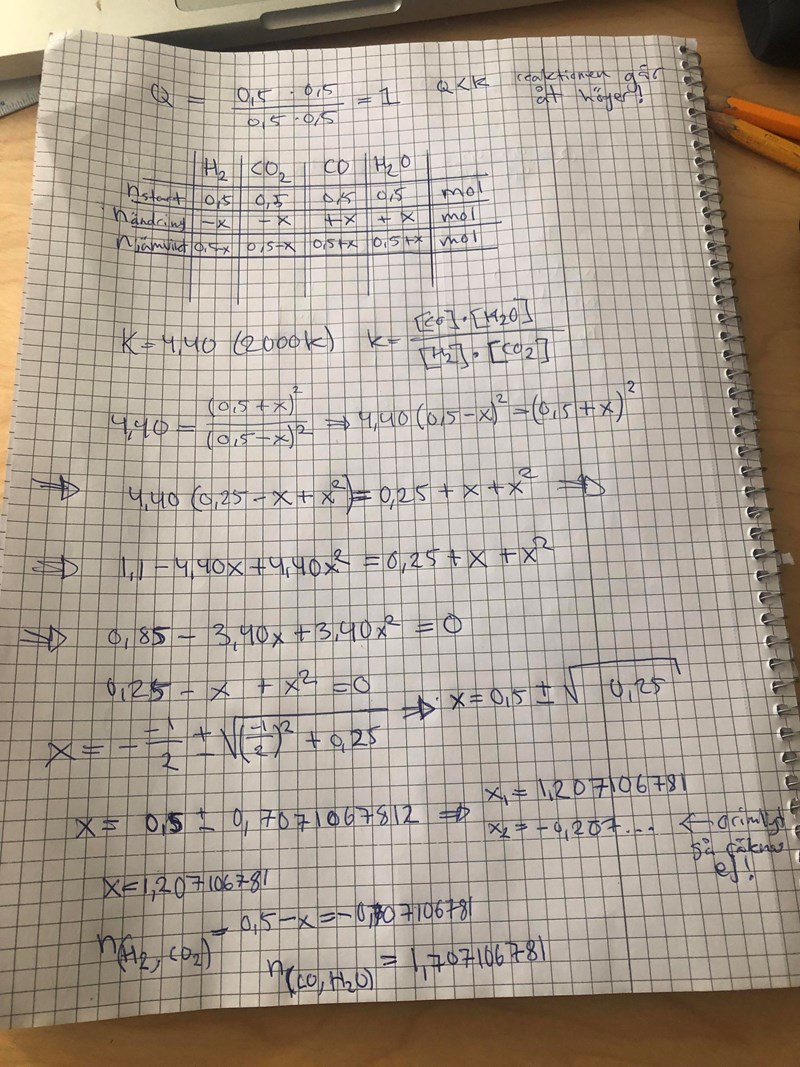 Q = 0,5 · 0,5 / 0,5 · 0,5 = 1   Q<K   reaktionen går
åt höger!
H2 | CO2 | CO | H2O
nstart | 0,5 | 0,5 | 0,5 | 0,5 | mol
nändring | -x | -x | +x | +x | mol
njämvikt | 0,5-x | 0,5-x | 0,5+x | 0,5+x | mol
K=4,40 (2000K)   K= [CO]·[H2O] / [H2]·[CO2]
4,40 = (0,5+x)² / (0,5-x)² ⇒ 4,40(0,5-x)² = (0,5+x)²
⇒ 4,40(0,25-x+x²) = 0,25+x+x² ⇒
⇒ 1,1-4,40x+4,40x² = 0,25+x+x²
⇒ 0,85 - 3,40x+3,40x² = 0
0,25 - x + x² = 0
x = - -1/2 ± √((-1/2)² + 0,25) ⇒ x=0,5 ± √0,25
x = 0,5 ± 0,7071067812 ⇒ x1 = 1,207106781
x2 = -0,207... ← orimligt
så räknas
ej!
x=1,207106781
n(H2, CO2) = 0,5-x = -0,707106781
n(CO, H2O) = 1,707106781